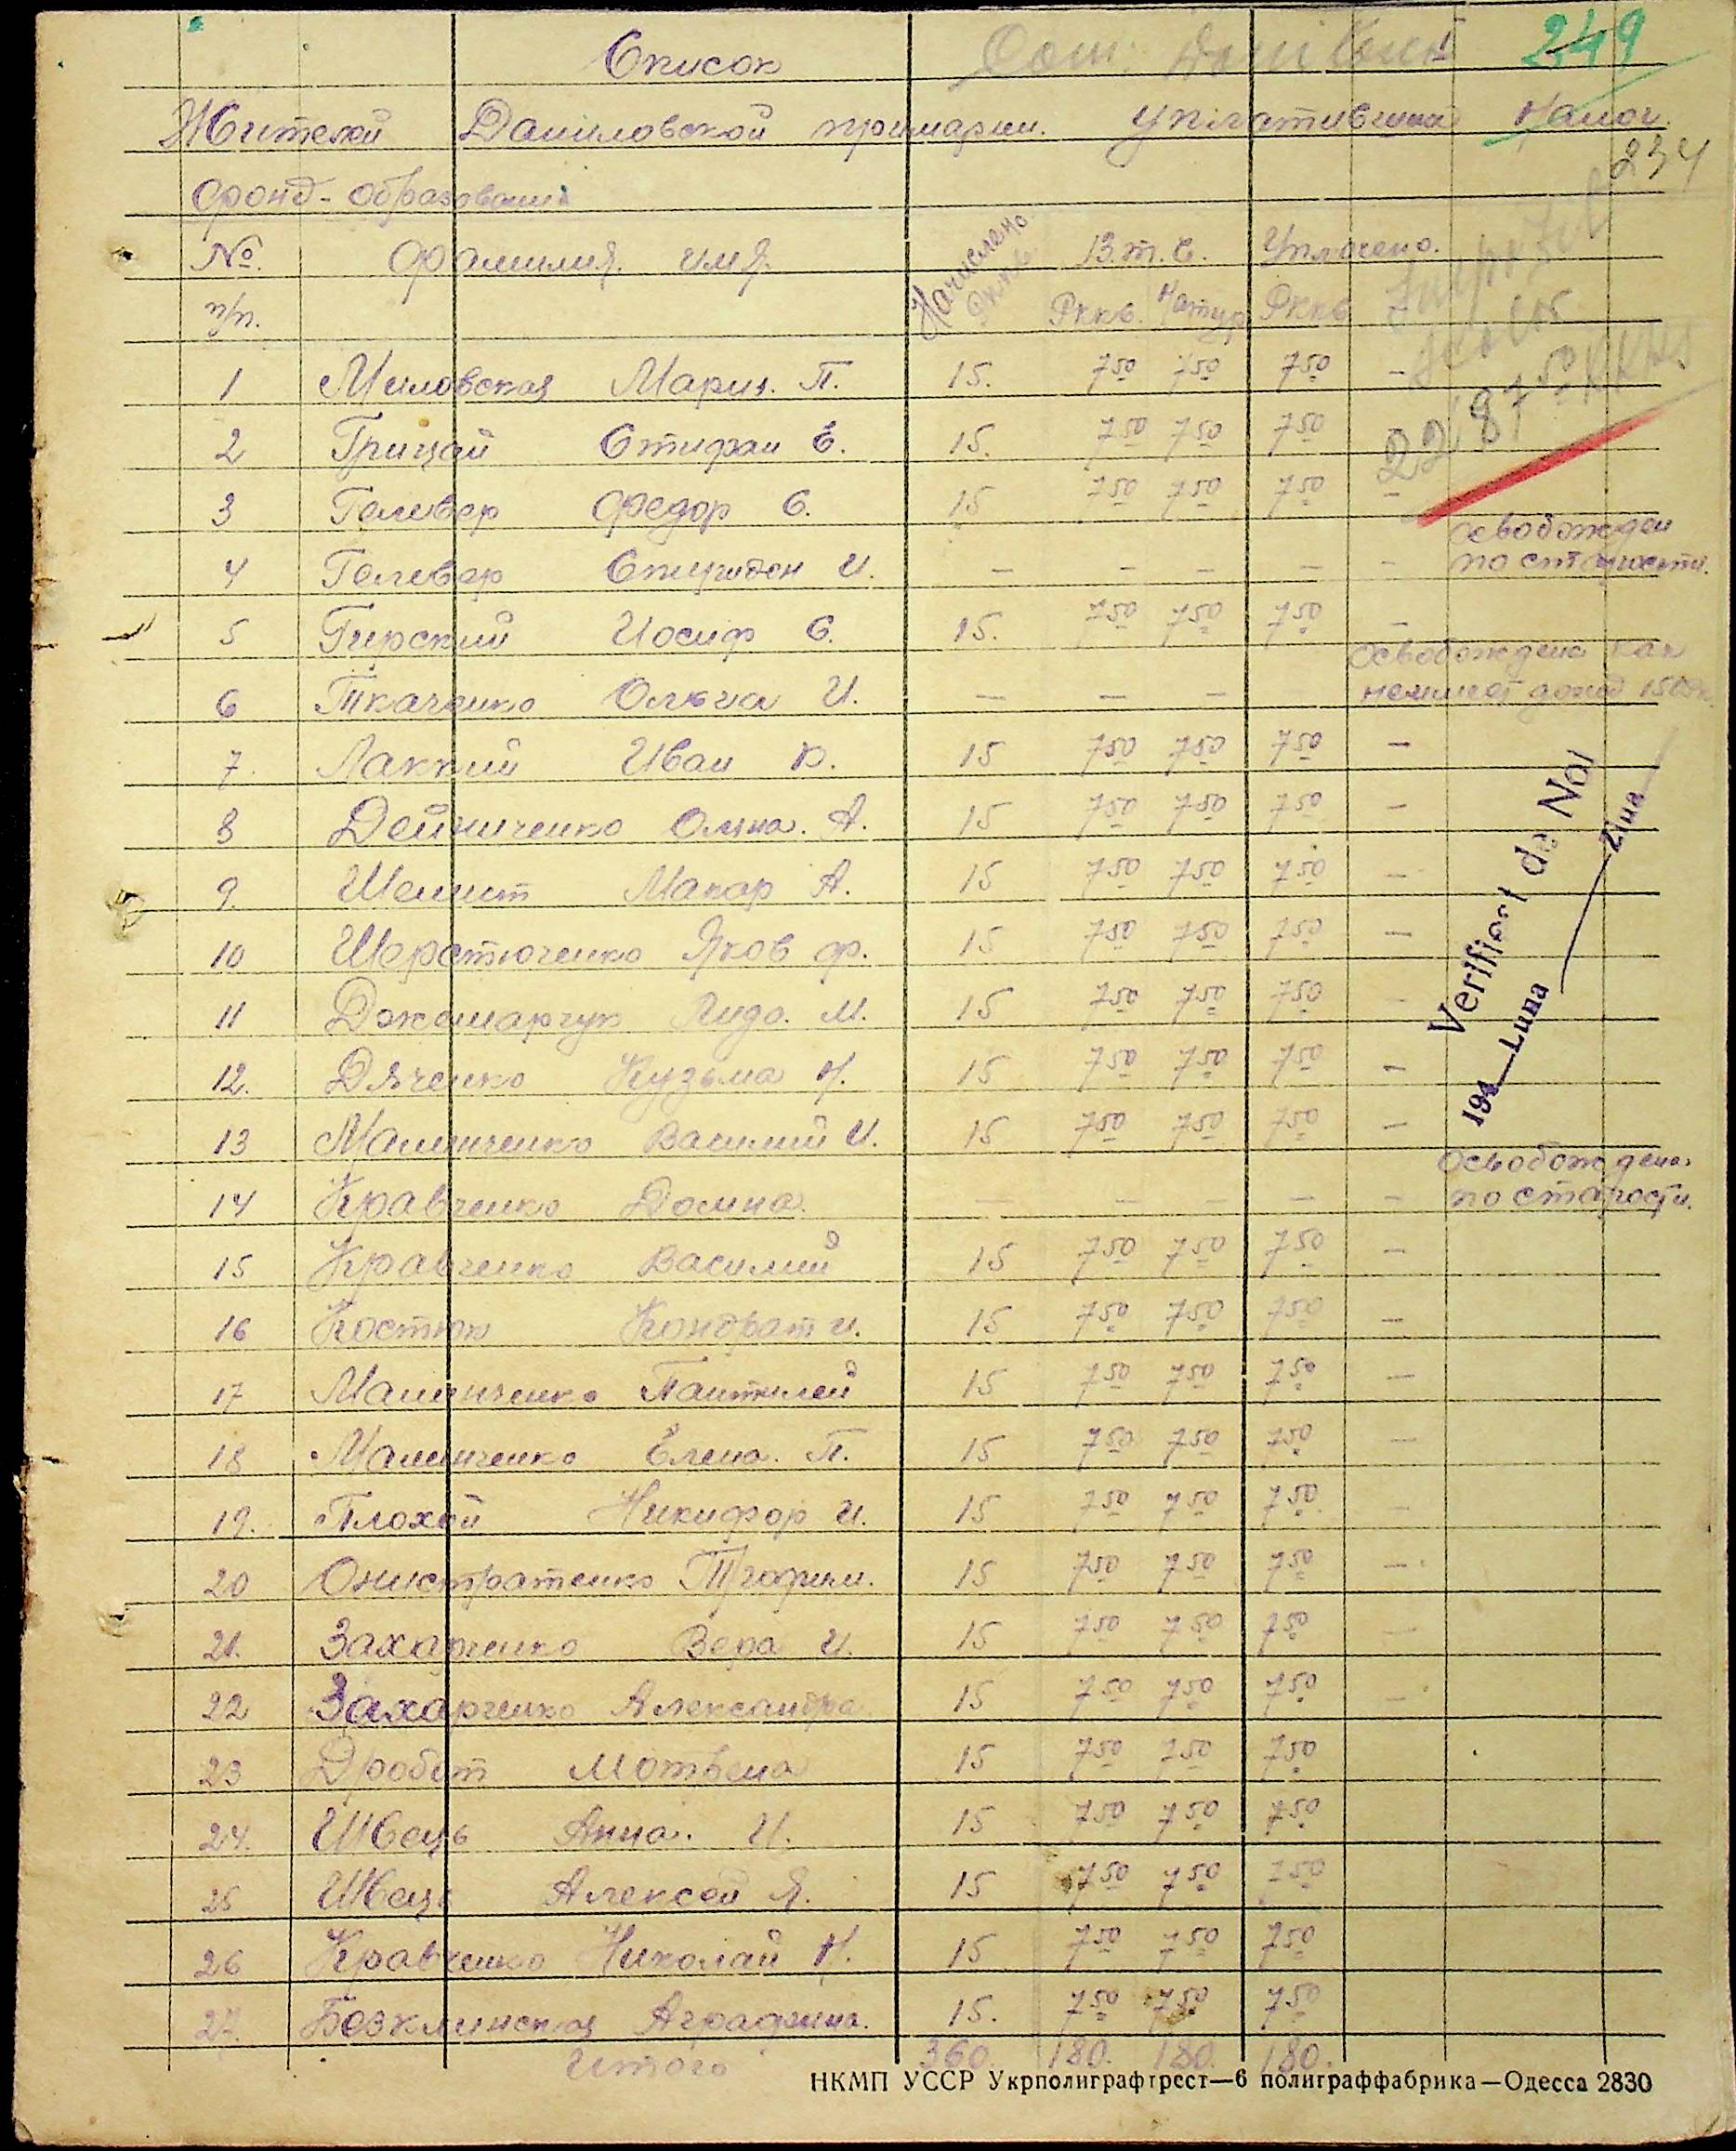 Список 249
Жителей Даниловской примарии. уплативших налог. 234
фонд - образования
№ Фамилия. имя. Начислено Ркк. В.т.ч. Уплочено.
п/п. Ркк. Натур Ркк
1 Миловская Мария. П. 15. 7 50 7 50 7 50 –
2 Грицай Стифан Е. 15. 7 50 7 50 7 50 – 22/87 50
3 Геливер Федор С. 15 7 50 7 50 7 50 –
4 Геливер Спиридон И. – – – – – освобожден по старости.
5 Гирский Иосиф С. 15. 7 50 7 50 7 50 –
6 Ткаченко Ольга И. – – – Освобождена как неимеет доход
7. Лаккий Иван 15 7 50 7 50 7 50 –
8 Дейниченко Олена. А. 15 7 50 7 50 7 50 –
9. Шелист Макар А. 15 7 50 7 50 7 50 –
10 Шерстюченко Яков Ф. 15 7 50 7 50 7 50 –
11 М. 15 7 50 7 50 7 50 –
12. Дяченко Кузьма Н. 15 7 50 7 50 7 50 –
13 Малинченко Василий И. 15 7 50 7 50 7 50 –
14 Кравченко Домна. – – – – – Освобождена. по старости.
15 Кравченко Василий 15 7 50 7 50 7 50 –
16 Костюк Кондрат И. 15 7 50 7 50 7 50 –
17 Малинченко Пантилей 15 7 50 7 50 7 50 –
18 Малинченко Елена. П. 15 7 50 7 50 7 50 –
19. Плохой Никифор И. 15 7 50 7 50 7 50 –
20 Онистратенко 15 7 50 7 50 7 50 –
21. Захарченко Вера И. 15 7 50 7 50 7 50 –
22 Захарченко Александра 15 7 50 7 50 7 50 –
23 Дробот Мотвена 15 7 50 7 50 7 50
24. Швець Анна. И. 15 7 50 7 50 7 50
25 Швець Алексей Я. 15 7 50 7 50 7 50
26 Кравченко Николай Н. 15 7 50 7 50 7 50
27. Безклинская Аграфина. 15. 7 50 7 50 7 50
Итого 360. 180. 180. 180.
Verificat de Noi
194 Luna Ziua
НКМП УССР Укрполиграфтрест—6 полиграффабрика—Одесса 2830